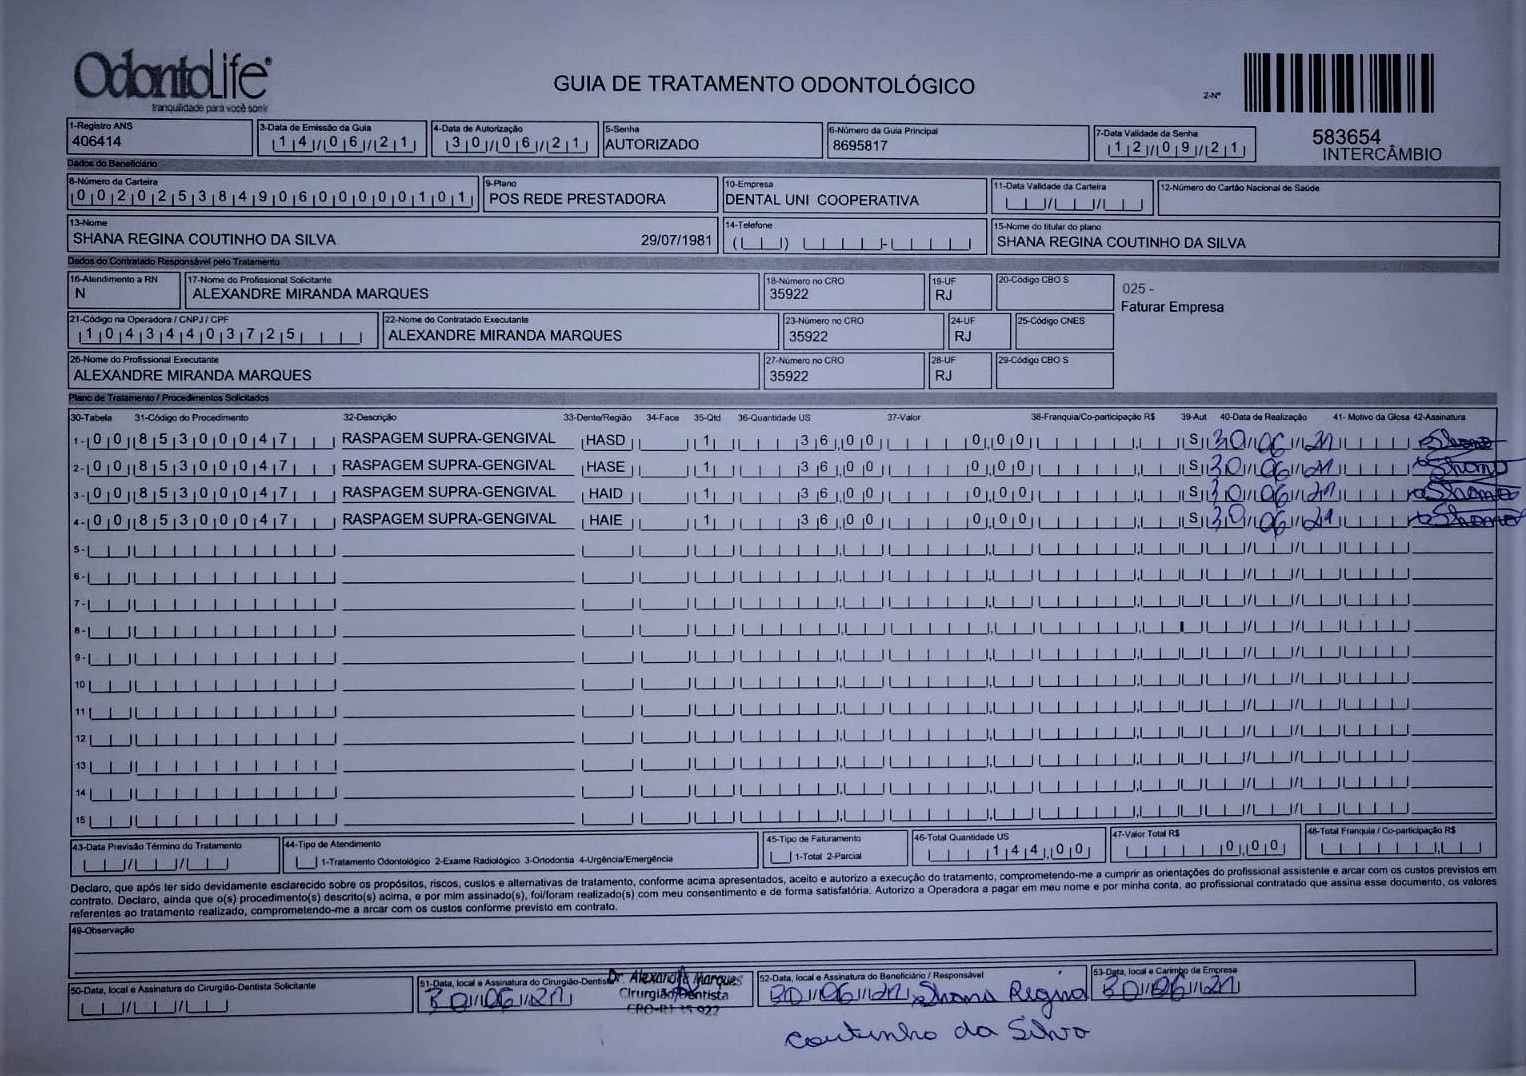 OdontoLife®
tranquilidade para você sorrir
GUIA DE TRATAMENTO ODONTOLÓGICO
2-Nº
583654
INTERCÂMBIO
1-Registro ANS
406414
3-Data de Emissão da Guia
14/06/21
4-Data de Autorização
30/06/21
5-Senha
AUTORIZADO
6-Número da Guia Principal
8695817
7-Data Validade da Senha
12/09/21
Dados do Beneficiário
8-Número da Carteira
00202538490600000101
9-Plano
POS REDE PRESTADORA
10-Empresa
DENTAL UNI COOPERATIVA
11-Data Validade da Carteira
12-Número do Cartão Nacional de Saúde
13-Nome
SHANA REGINA COUTINHO DA SILVA 29/07/1981
14-Telefone
15-Nome do titular do plano
SHANA REGINA COUTINHO DA SILVA
Dados do Contratado Responsável pelo Tratamento
16-Atendimento a RN
N
17-Nome do Profissional Solicitante
ALEXANDRE MIRANDA MARQUES
18-Número no CRO
35922
19-UF
RJ
20-Código CBO S
025 -
Faturar Empresa
21-Código na Operadora / CNPJ / CPF
10434403725
22-Nome do Contratado Executante
ALEXANDRE MIRANDA MARQUES
23-Número no CRO
35922
24-UF
RJ
25-Código CNES
26-Nome do Profissional Executante
ALEXANDRE MIRANDA MARQUES
27-Número no CRO
35922
28-UF
RJ
29-Código CBO S
Plano de Tratamento / Procedimentos Solicitados
30-Tabela 31-Código do Procedimento 32-Descrição 33-Dente/Região 34-Face 35-Qtd 36-Quantidade US 37-Valor 38-Franquia/Co-participação R$ 39-Aut 40-Data de Realização 41- Motivo da Glosa 42-Assinatura
1- 00 85300047 RASPAGEM SUPRA-GENGIVAL HASD 1 36,00 0,00 S 30/06/21 Shana
2- 00 85300047 RASPAGEM SUPRA-GENGIVAL HASE 1 36,00 0,00 S 30/06/21 Shana
3- 00 85300047 RASPAGEM SUPRA-GENGIVAL HAID 1 36,00 0,00 S 30/06/21 Shana
4- 00 85300047 RASPAGEM SUPRA-GENGIVAL HAIE 1 36,00 0,00 S 30/06/21 Shana
5-
6-
7-
8-
9-
10
11
12
13
14
15
43-Data Previsão Término do Tratamento
44-Tipo de Atendimento
1-Tratamento Odontológico 2-Exame Radiológico 3-Ortodontia 4-Urgência/Emergência
45-Tipo de Faturamento
1-Total 2-Parcial
46-Total Quantidade US
144,00
47-Valor Total R$
0,00
48-Total Franquia / Co-participação R$
Declaro, que após ter sido devidamente esclarecido sobre os propósitos, riscos, custos e alternativas de tratamento, conforme acima apresentados, aceito e autorizo a execução do tratamento, comprometendo-me a cumprir as orientações do profissional assistente e arcar com os custos previstos em
contrato. Declaro, ainda que o(s) procedimento(s) descrito(s) acima, e por mim assinado(s), foi/foram realizado(s) com meu consentimento e de forma satisfatória. Autorizo a Operadora a pagar em meu nome e por minha conta, ao profissional contratado que assina esse documento, os valores
referentes ao tratamento realizado, comprometendo-me a arcar com os custos conforme previsto em contrato.
49-Observação
50-Data, local e Assinatura do Cirurgião-Dentista Solicitante
51-Data, local e Assinatura do Cirurgião-Dentista
30/06/21
Dr. Alexandre Marques
Cirurgião Dentista
CRO-RJ 35 922
52-Data, local e Assinatura do Beneficiário / Responsável
30/06/21 Shana Regina
Coutinho da Silva
53-Data, local e Carimbo da Empresa
30/06/21